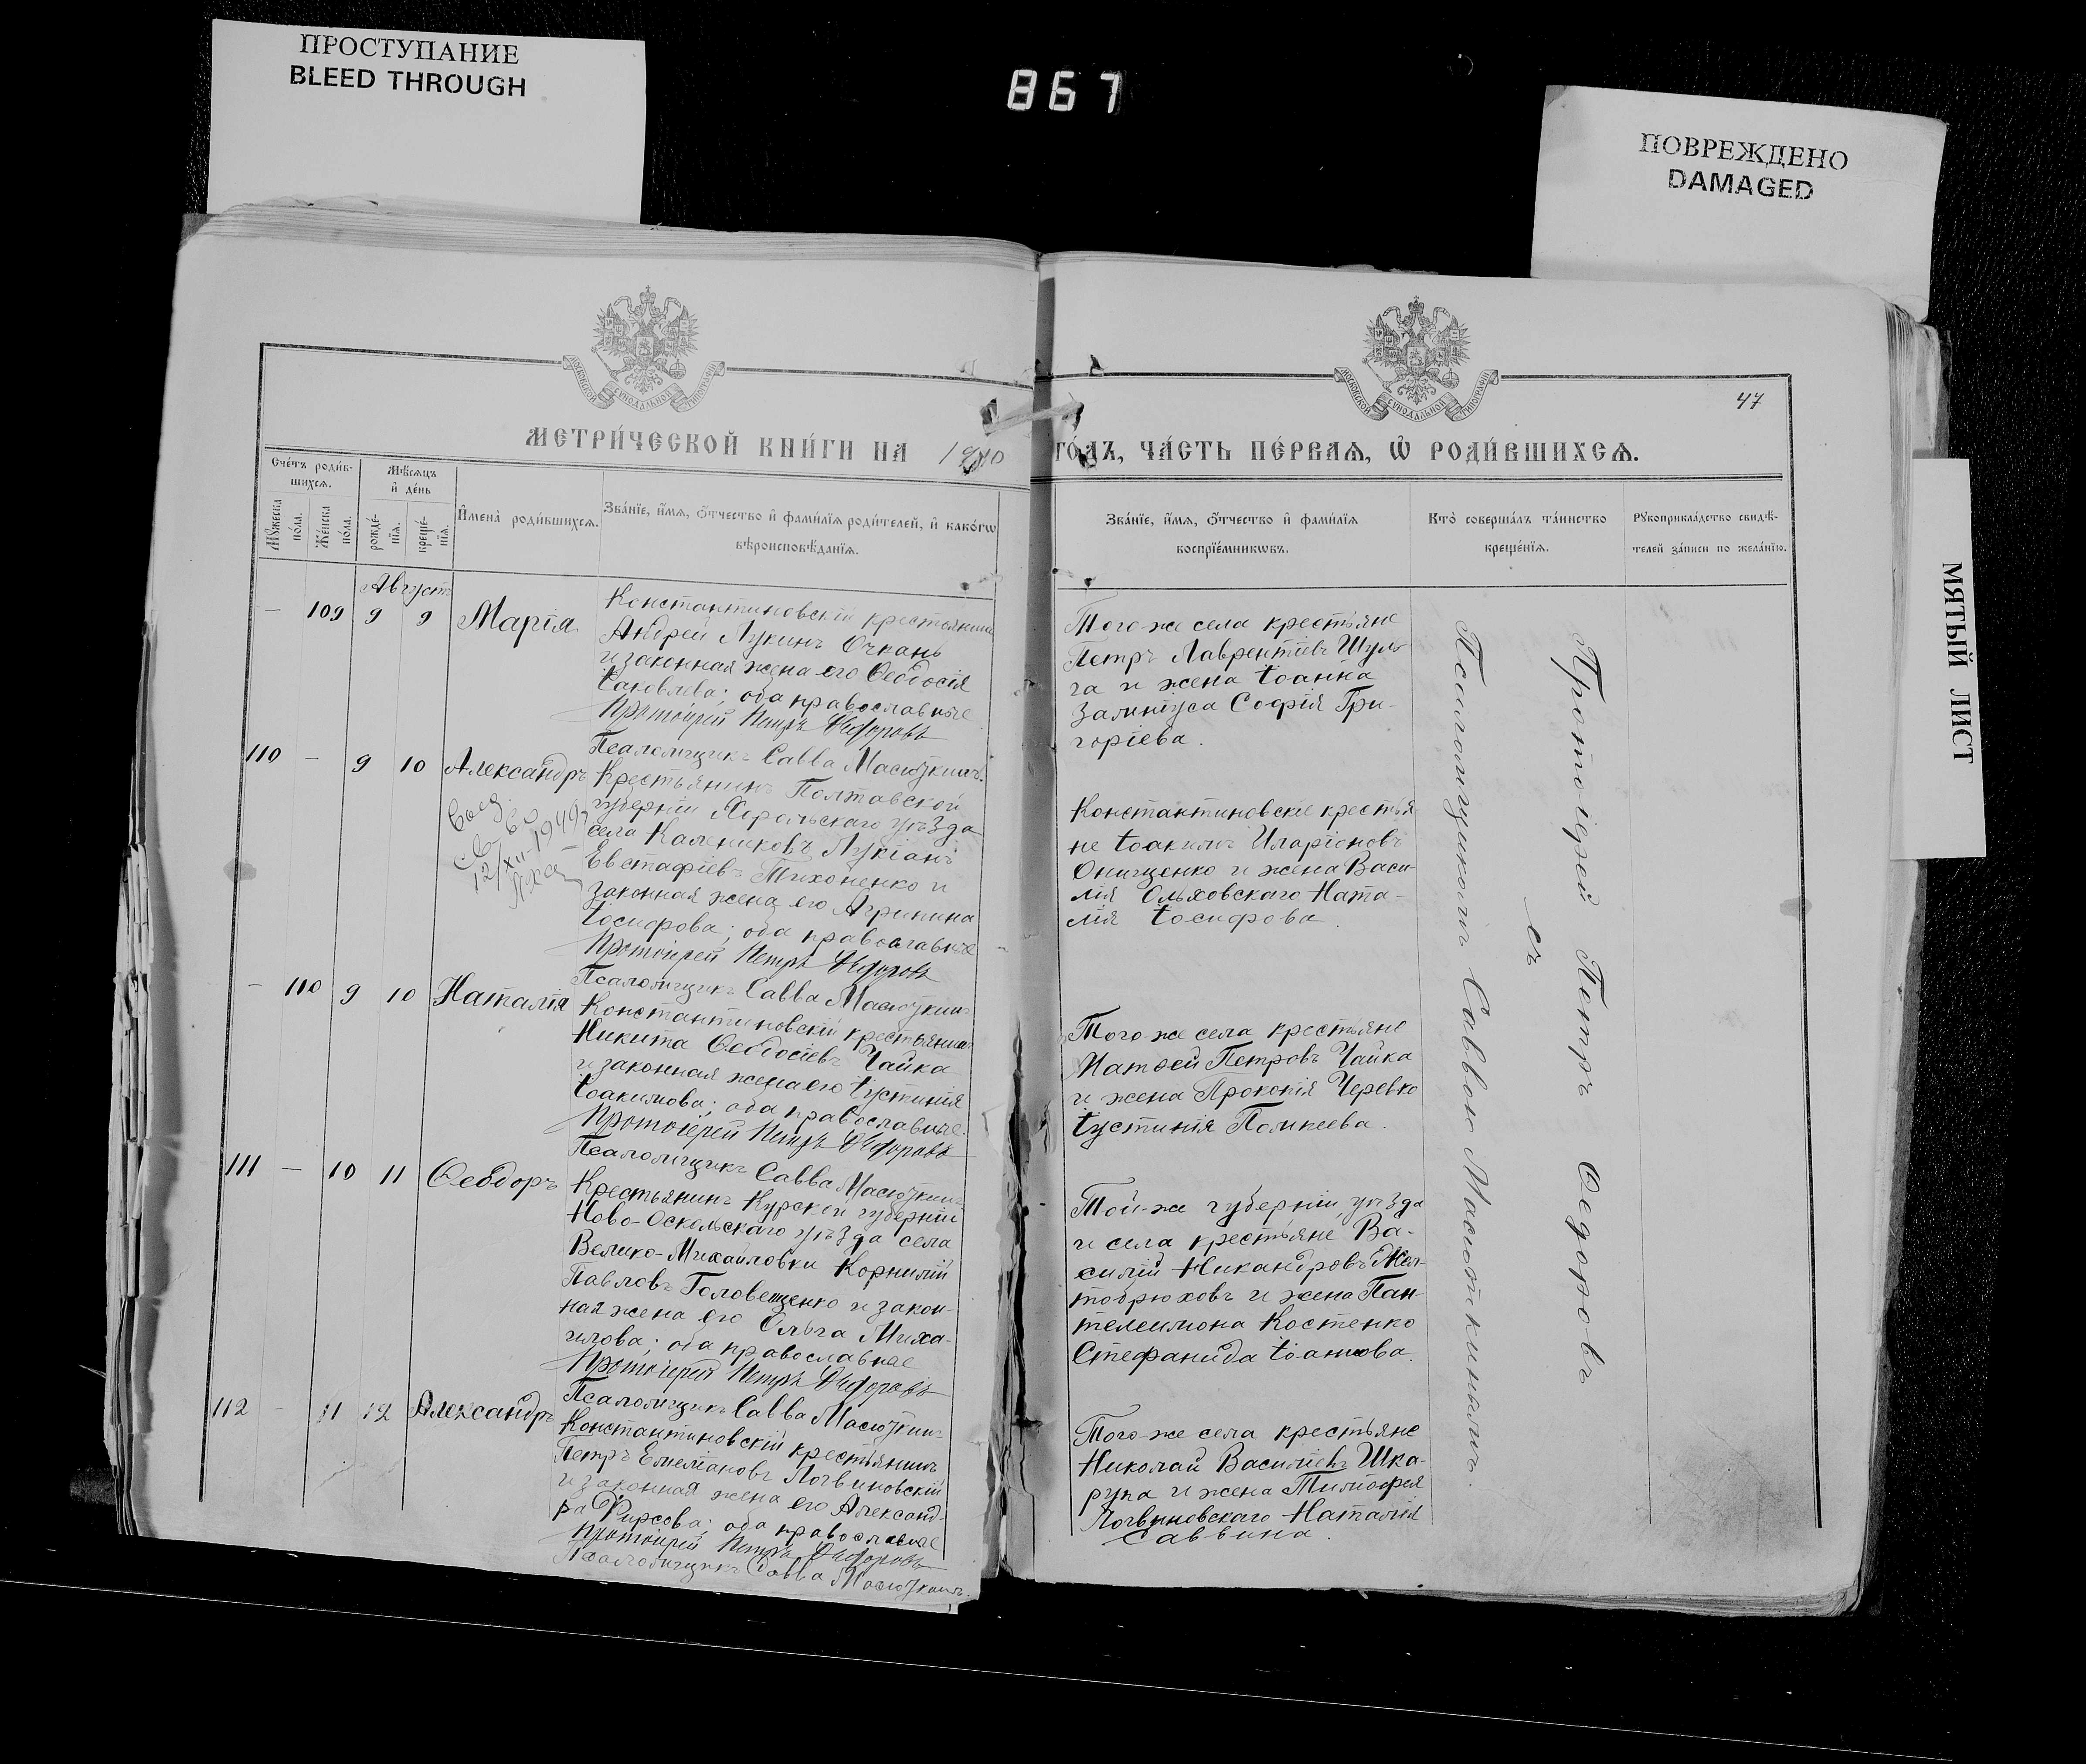 ПРОСТУПАНИЕ
BLEED THROUGH
867
ПОВРЕЖДЕНО
DAMAGED
МЯТЫЙ ЛИСТ
47
МОСКОВСКОЙ СѴНОДАЛЬНОЙ ТИПОГРАФІИ
МОСКОВСКОЙ СѴНОДАЛЬНОЙ ТИПОГРАФІИ
МЕТРИ́ЧЕСКОЙ КНИ́ГИ НА 1910 ГО́ДЪ, ЧА́СТЬ ПЕ́РВАѦ, Ѡ҆ РОДИ́ВШИХСѦ.
Сче́тъ роди́вшихсѧ.
Мꙋ́жеска по́ла.
Же́нска по́ла.
Мѣ́сѧцъ и҆ де́нь
рожде́нїѧ.
креще́нїѧ.
И҆мена̀ роди́вшихсѧ.
Зва́нїе, и҆́мѧ, ѻ҆́тчество и҆ фами́лїѧ роди́телей, и҆ како́гѡ
вѣроисповѣ́данїѧ.
Зва́нїе, и҆́мѧ, ѻ҆́тчество и҆ фами́лїѧ
воспрїе́мникѡвъ.
Кто̀ соверша́лъ та́инство
креще́нїѧ.
Рꙋкоприкла́дство свидѣ́-
телей за́писи по жела́нїю.
Августъ
— 109 9 9 Марія
Константиновскій крестьянинъ
Андрей Лукинъ Очкань
и законная жена его Ѳеодосія
Іаковлева; оба православные
Протоіерей Петръ Ѳедоровъ
Псаломщикъ Савва Масюткинъ.
Того-же села крестьяне
Петръ Лаврентіевъ Шуль-
га и жена Іоанна
Софія Гри-
горіева.
110 — 9 10 Александръ
12/XII-1949
Крестьянинъ Полтавской
губерніи Хорольскаго уѣзда
села Калениковъ Лукіанъ
Евстафіевъ Тихоненко и
законная жена его Агрипина
Іосифова; оба православные
Протоіерей Петръ Ѳедоровъ
Псаломщикъ Савва Масюткинъ
Константиновскіе крестья-
не Іоакимъ Иларіоновъ
Онищенко и жена Васи-
лія Ольховскаго Ната-
лія Іосифова.
— 110 9 10 Наталія
Константиновскій крестьянинъ
Никита Ѳеодосіевъ Чайка
и законная жена его Іустинія
Іоакимова; оба православные.
Протоіерей Петръ Ѳедоровъ
Псаломщикъ Савва Масюткинъ
Того-же села крестьяне
Матѳей Петровъ Чайка
и жена Прокопія Черевко
Іустинія
111 — 10 11 Ѳеодоръ
Крестьянинъ Курской губерніи
Ново-Оскольскаго уѣзда села
Велико-Михайловки Корнилій
Павловъ Головещенко и закон-
ная жена его Ольга Миха-
илова; оба православные
Протоіерей Петръ Ѳедоровъ
Псаломщикъ Савва Масюткинъ
Той-же губерніи, уѣзда
и села крестьяне Ва-
силій Никандровъ Жел-
тобрюховъ и жена Пан-
телеимона Костенко
Стефанида Іоаннова.
112 — 11 12 Александръ
Константиновскій крестьянинъ
Петръ Емеліановъ Логвиновскій
и законная жена его Александ-
ра Фирсова; оба православные
Протоіерей Петръ Ѳедоровъ
Псаломщикъ Савва Масюткинъ.
Того-же села крестьяне
Николай Василіевъ Шка-
рупа и жена Тимоѳея
Логвиновскаго Наталія
Саввина.
Протоіерей Петръ Ѳедоровъ
съ
Псаломщикомъ Саввою Масюткинымъ.